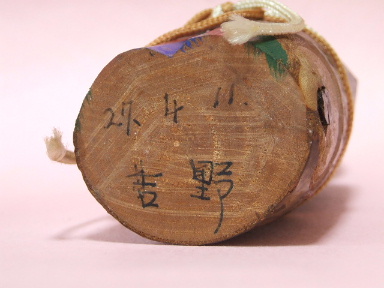 27. 4 11.
吉野